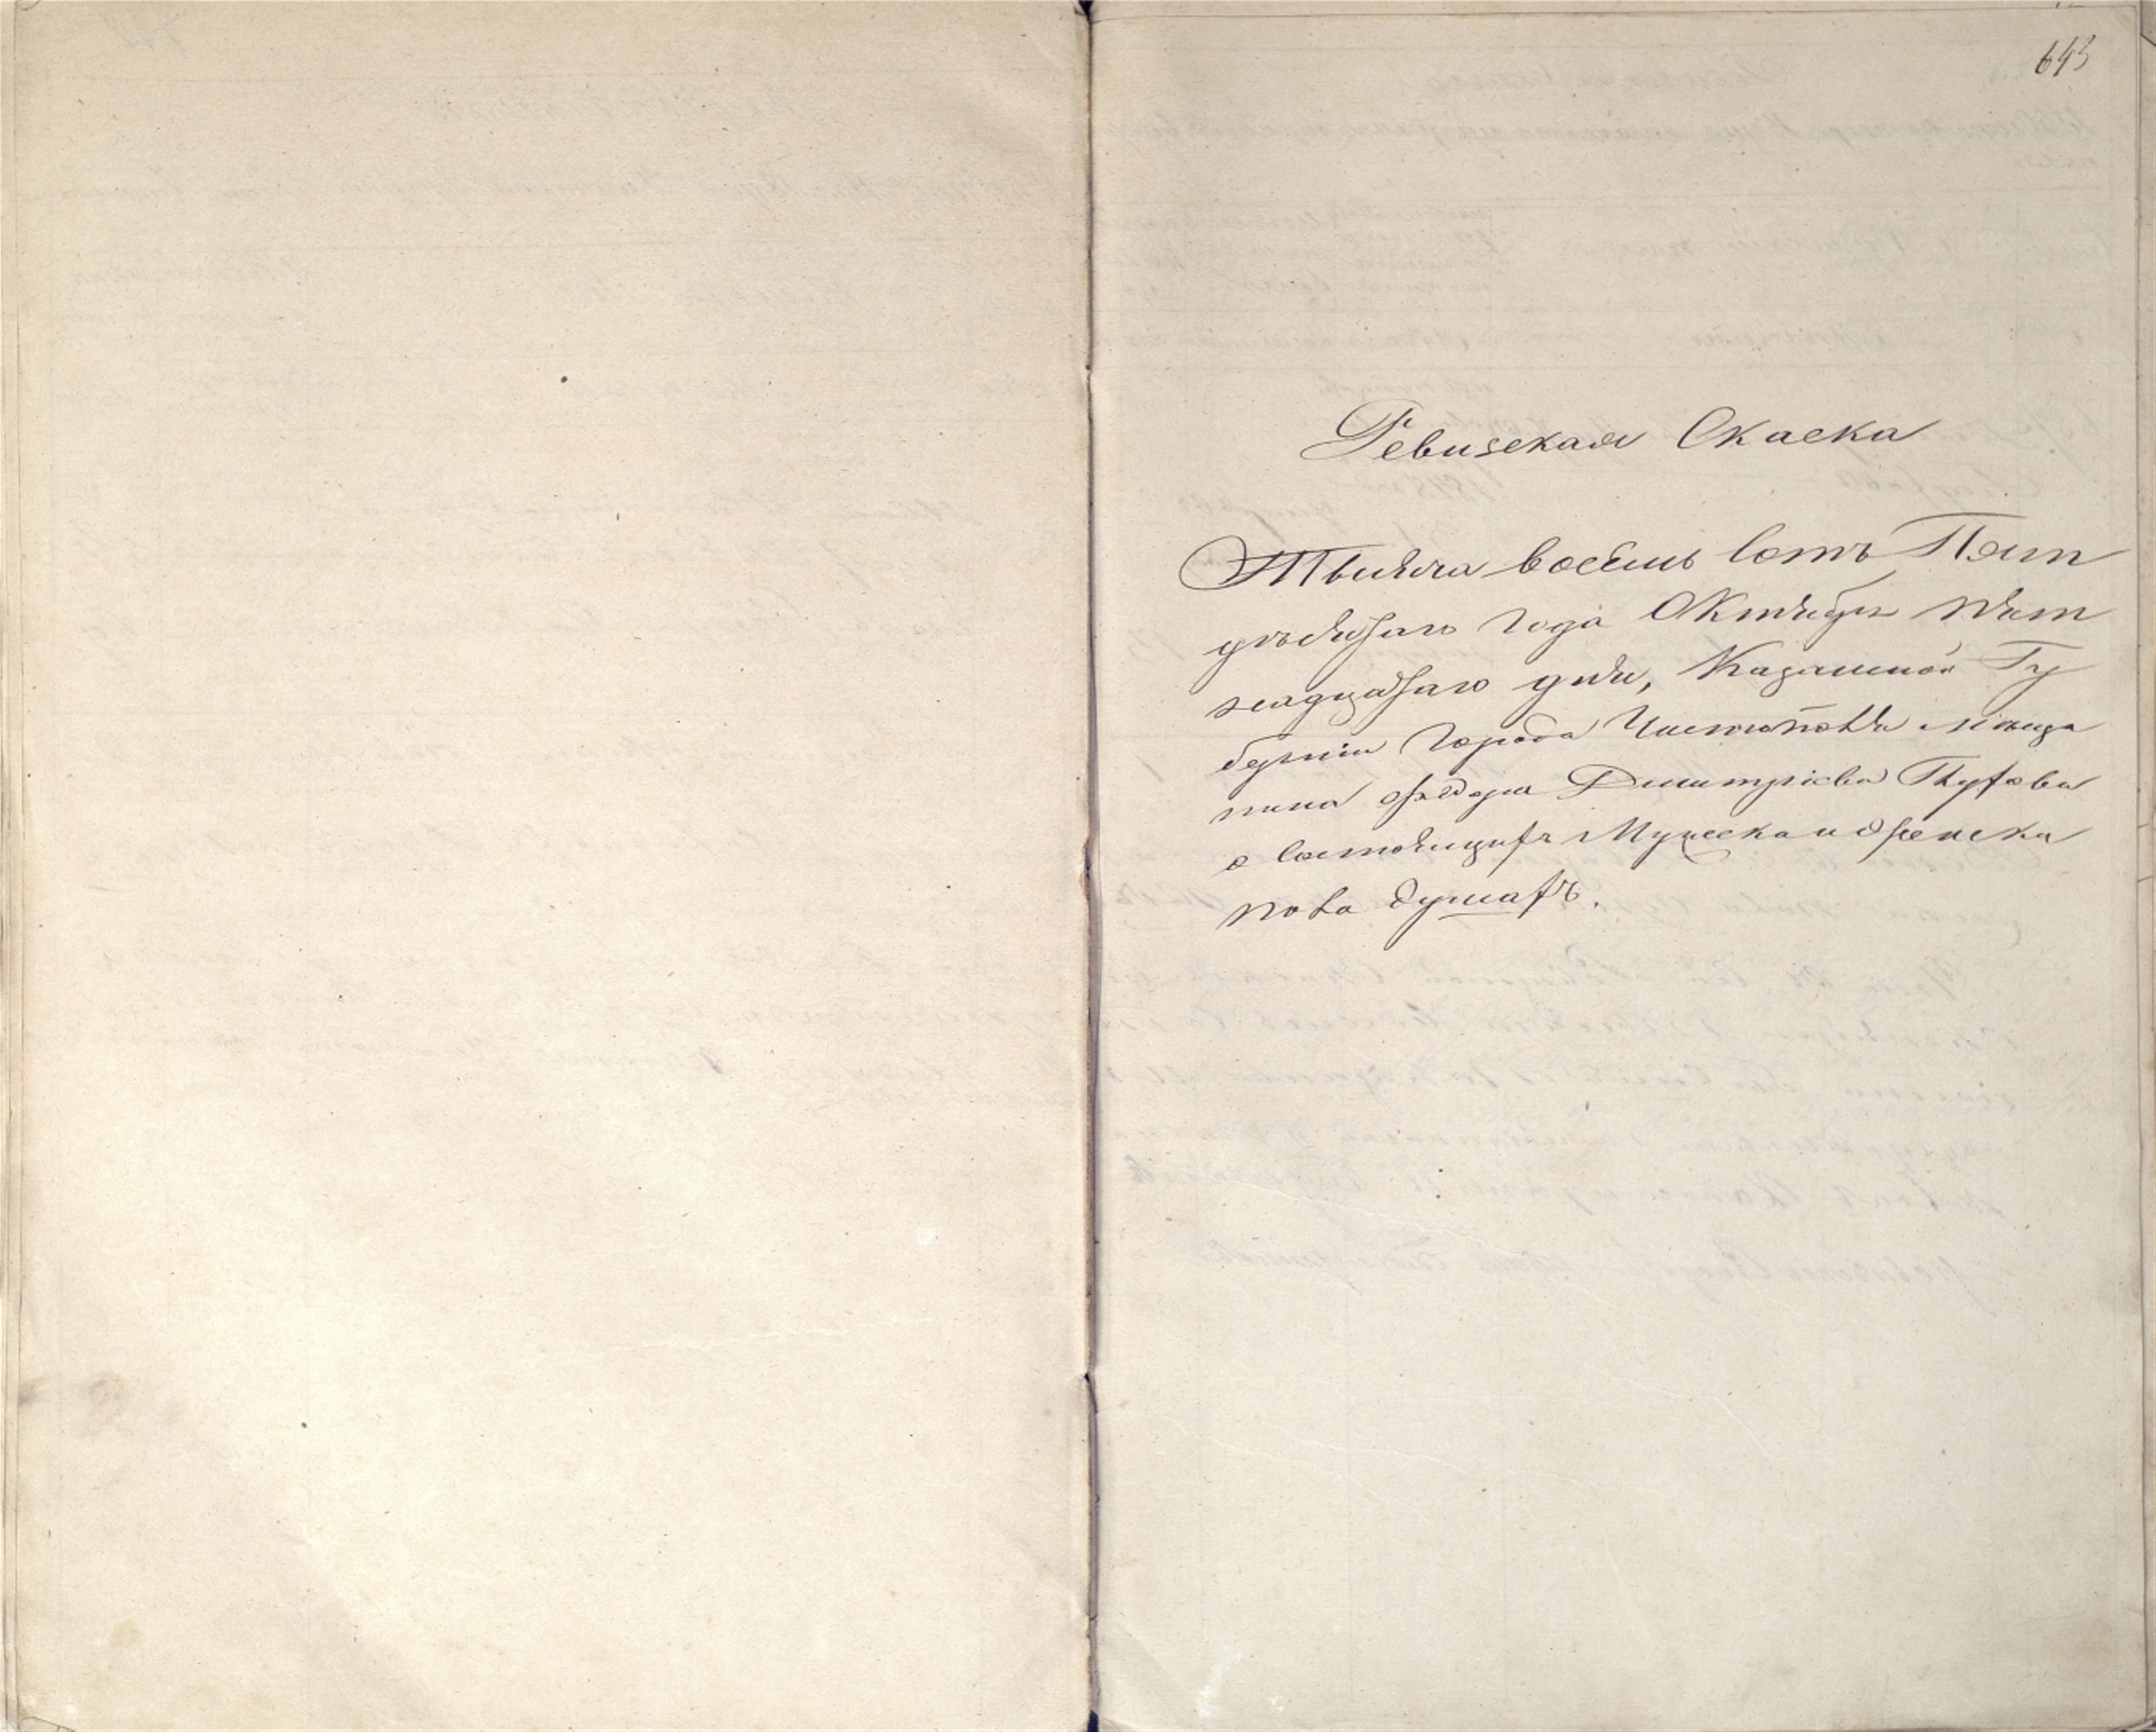 643
Ревизская Скаска
Тысяча восемь сотъ Пят
десятаго года Октября пят
надцатаго дня, Казанской Гу
берніи города Чистополя мѣща
нина Федора Дмитріева
о состоящихъ Мужеска и женска
пола душахъ.